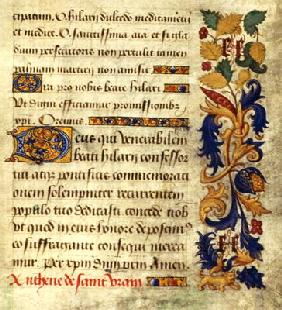 cipatum. O hilari dulcedo medicamenti
et medice. O sanctissima aia et si gla
dium persecutoris non pertulit tamen
palmam martirii non amisit
Ora pro nobis beate hilari
Ut digni efficiamur promissionibz
xpi. Oremus
Deus qui venerabilem
beati hilarii confessor
tui atqz pontificis commemorati
onem solempniter recurentem
populo tuo dedicasti concede nob
ut quod in eius honore deposcim
eo suffragante consequi merea
mur. Per xpm dnm nrm. Amen.
de saint